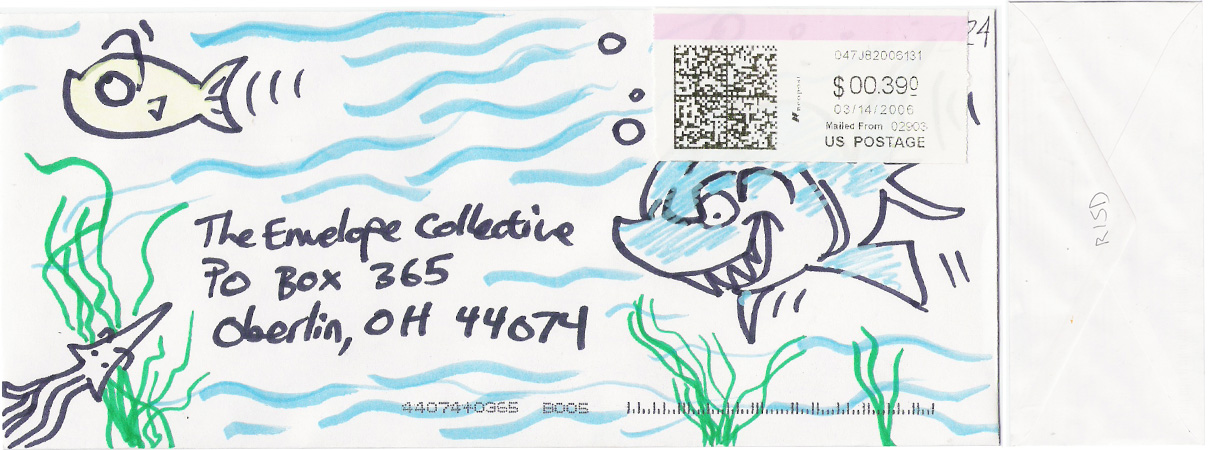 24
047J82006131
$00.390
03/14/2006
Mailed From 02903
US POSTAGE
The Envelope Collective
PO Box 365
Oberlin, OH 44074
44074+0365 B005
RISD